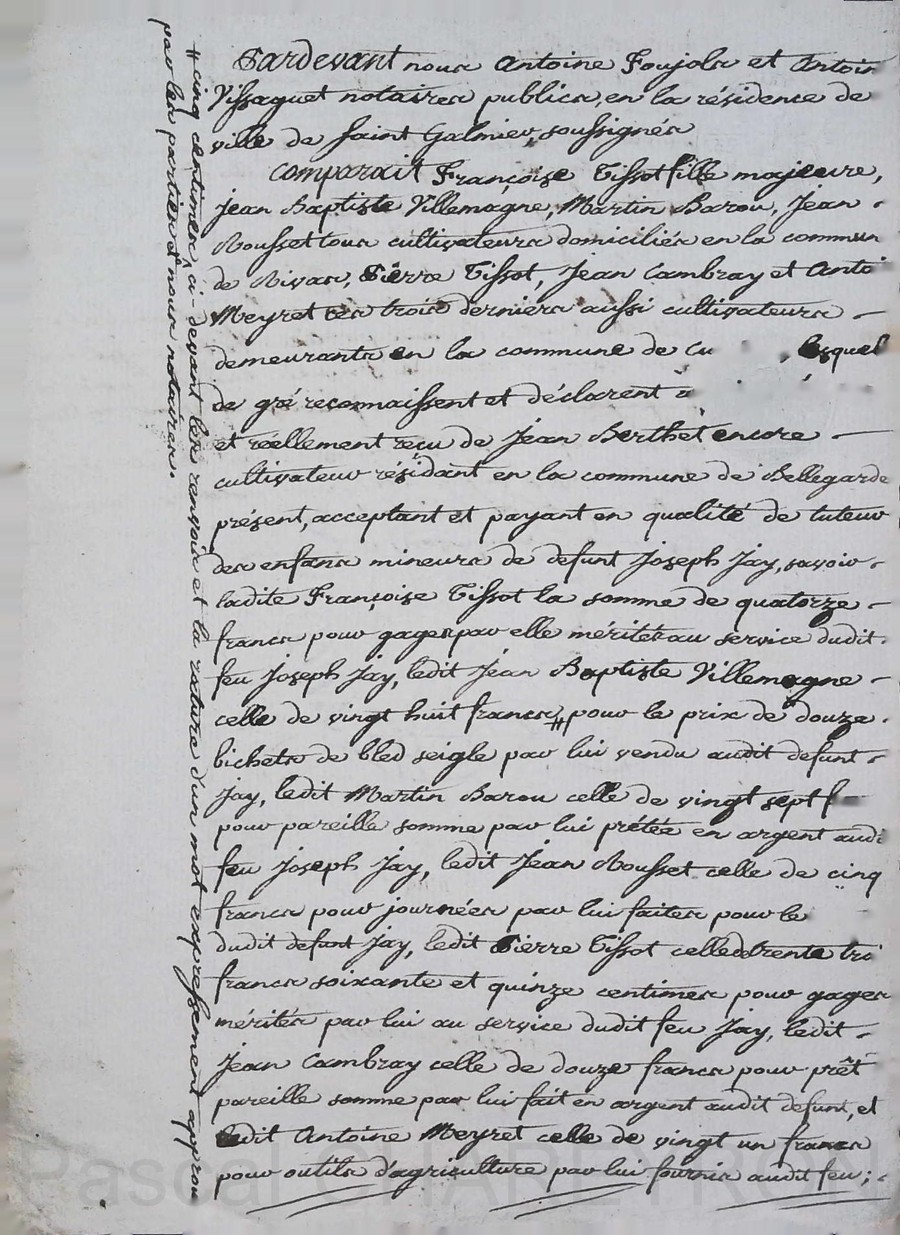 Pardevant nous Antoine Foujols et Antoin
Vissaguet notaires publics, en la résidence de
ville de Saint Galmier, soussignés
comparait Françoise Tissot fille majeure,
Jean Baptiste Villemagne, Martin Barou, Jean
Rousset tous cultivateurs domiciliés en la commun
de Rivas, Pierre Tissot, Jean Cambray et Antoi
Meyret ces trois derniers aussi cultivateurs
demeurants en la commune de Cu lesquel
de gré reconnaissent et déclarent a
et reellement recu de Jean Berthet encore
cultivateur résidant en la commune de Bellegarde
présent, acceptant et payant en qualité de tuteur
des enfans mineurs de defunt Joseph Jay, savoir
ladite Françoise Tissot la somme de quatorze
francs pour gages par elle mérités au service dudit
feu Joseph Jay, ledit Jean Baptiste Villemagne
celle de vingt huit francs,# pour le prix de douze
bichets de bled seigle par lui vendu audit defunt
Jay, ledit Martin Barou celle de vingt sept f
pour pareille somme par lui prêtée en argent audi
feu Joseph Jay, ledit Jean Rousset celle de cinq
francs pour journées par lui faites pour le
dudit defunt Jay, ledit Pierre Tissot celle de trente troi
francs soixante et quinze centimes pour gages
mérités par lui au service dudit feu Jay, ledit
Jean Cambray celle de douze francs pour prêt
pareille somme par lui fait en argent audit defunt, et
ledit Antoine Meyret celle de vingt un francs
pour outils d'agriculture par lui fournis audit feu;
# cinq centimes, ci-devant les renvois et la rature d'un mot expressement approu
par les parties et nous notaires.